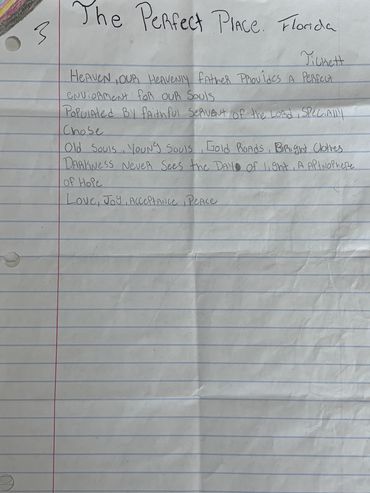 3 The Perfect Place. Florida
Tickett
Heaven, our Heavenly Father Provides a Perfect
enviorment for our Souls
Populated By Faithful Servent of the Lord, Specially
Chose
Old Souls, Young Souls, Gold Roads, Bright Clothes
Darkness Never Sees the Day of light, A Atmosphere
of Hope
Love, Joy, Acceptance, Peace